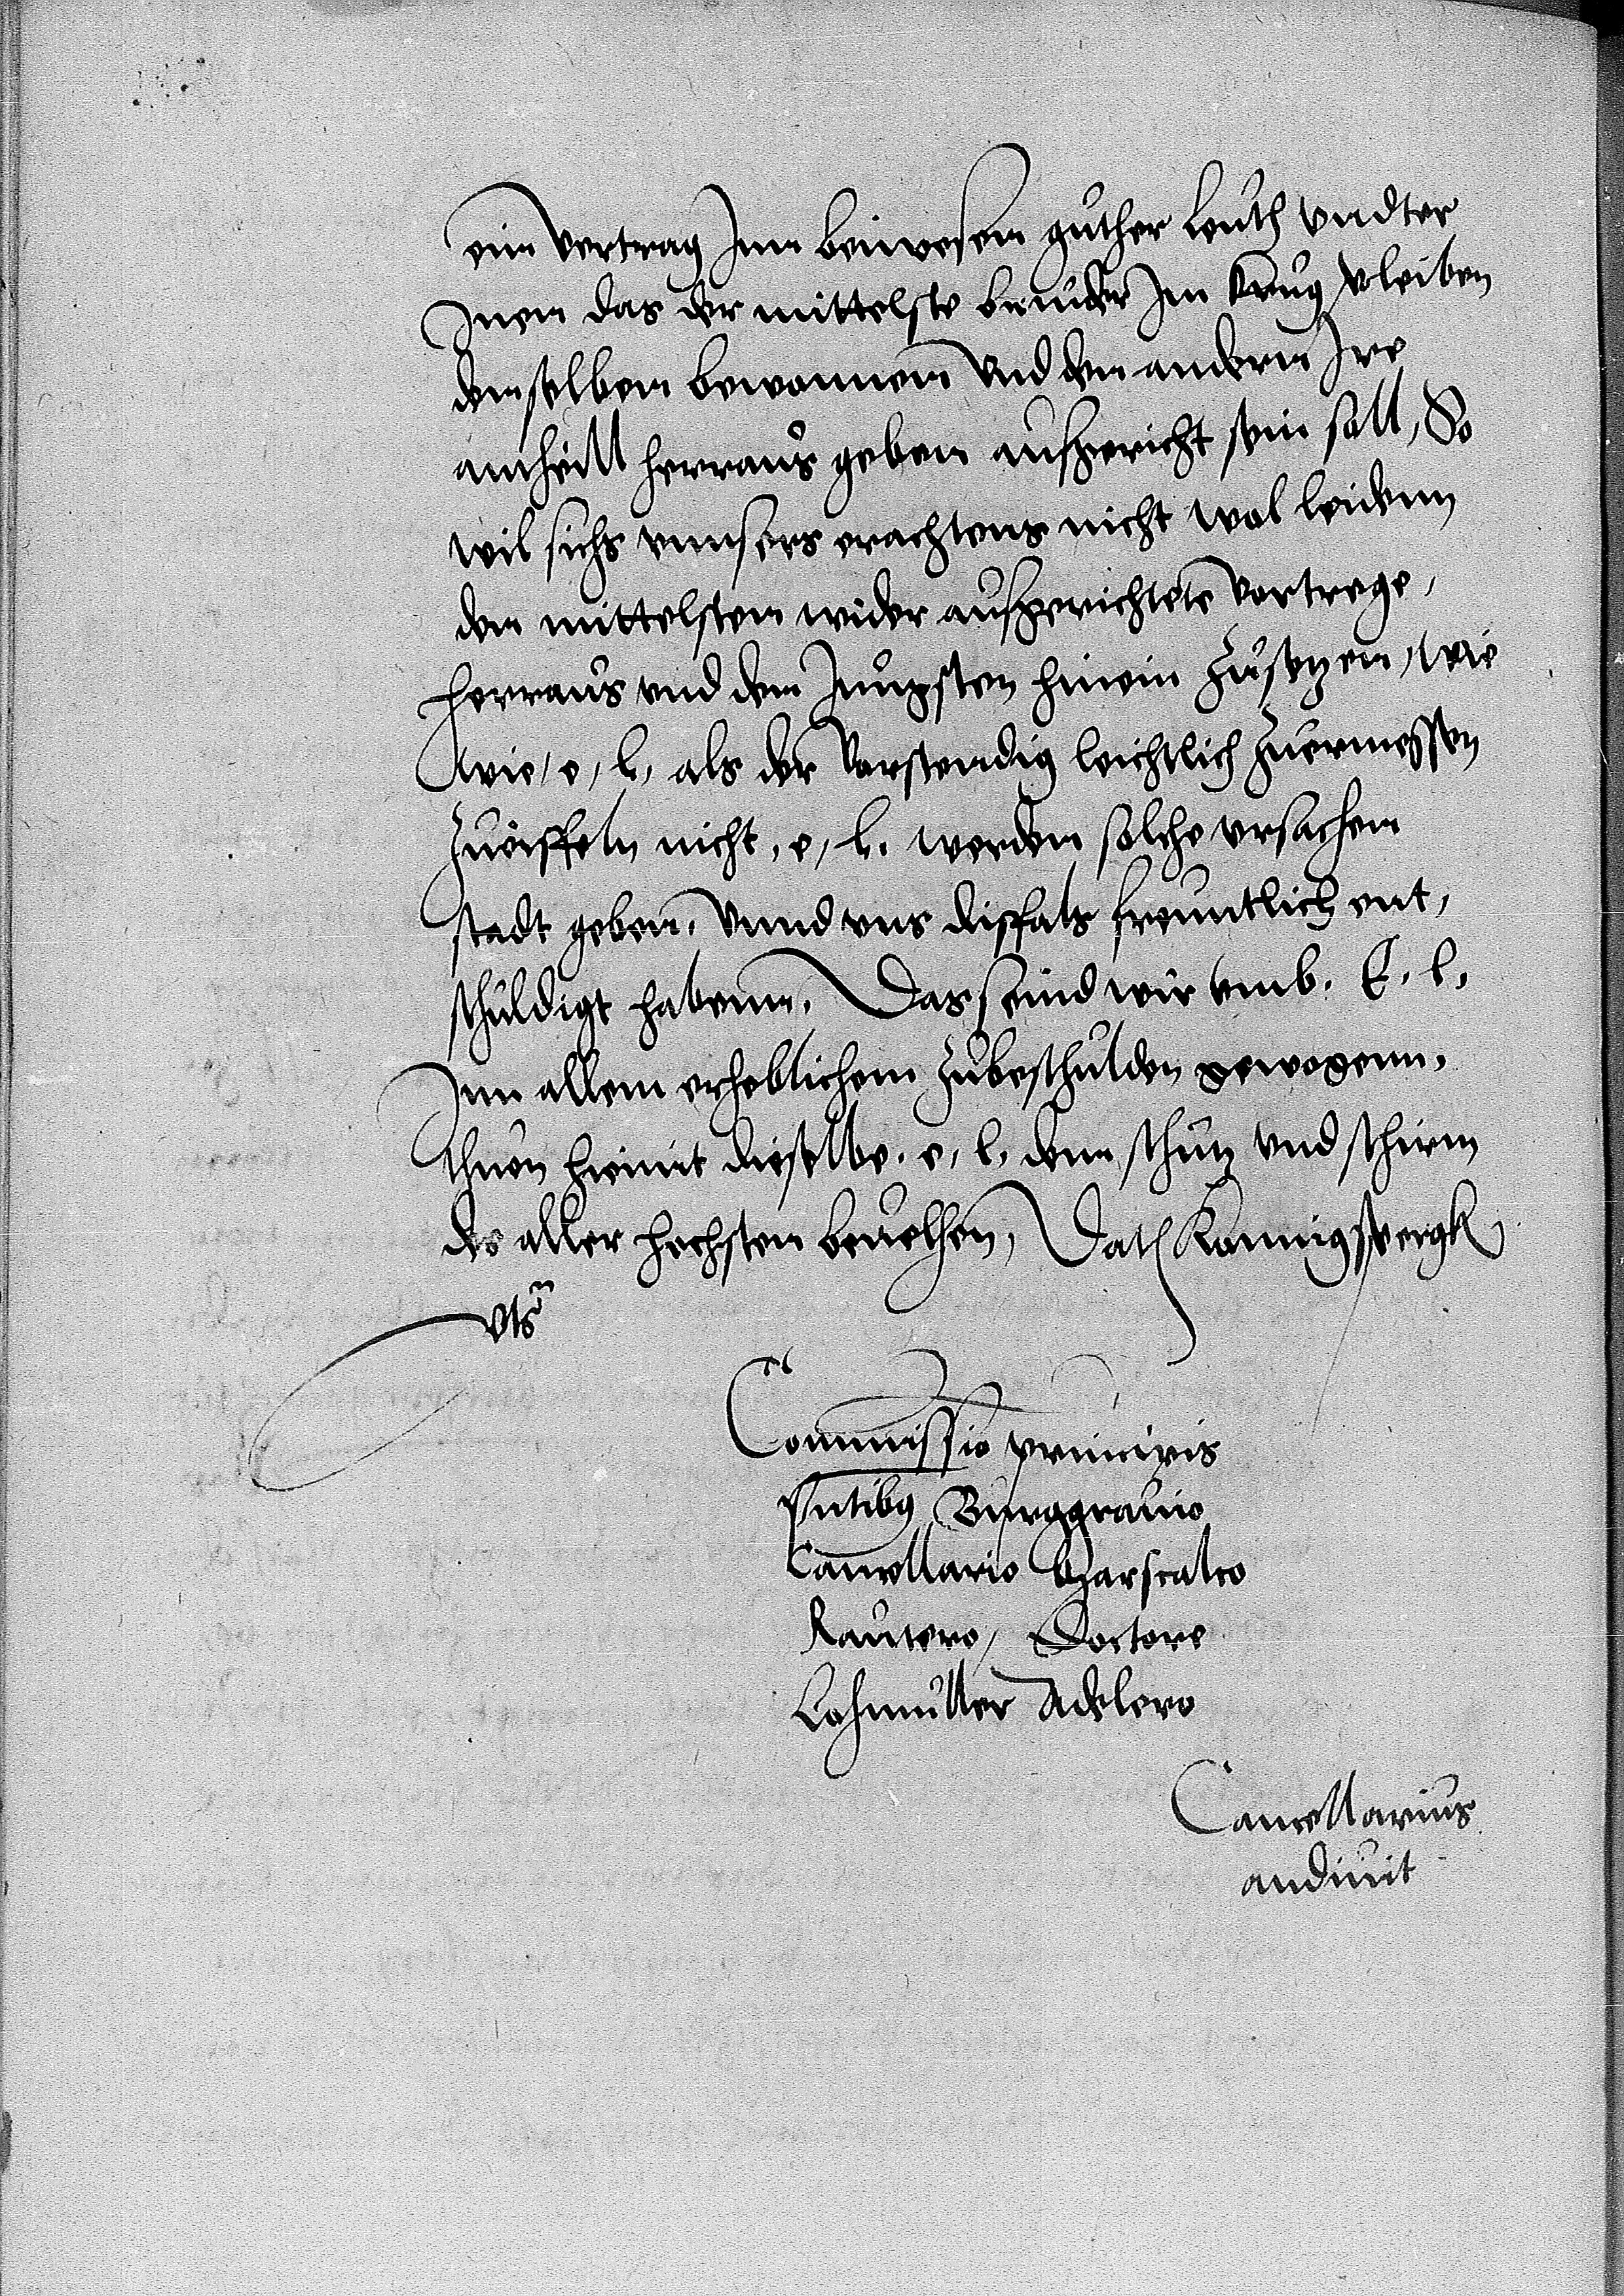 ein vertrag Inn beiwesen guther leuth vndter
Inen das der mittelste bruder Im krug bleiben
denselben bewonnen vnd den andern Ire
antheill herraus geben aufgericht sein soll, So
wil sichs vnnsers erachtens nicht wol leidenn
den mittelsten wider aufgerichtete vortrege,
herraus vnd den Jungsten hinein zusetzen, wie
wie, e, l, als der vorstendig leichtlich zuermessen
zweiffeln nicht, e, l. werden solche vrsachen
stadt geben, vnnd vns disfals freuntlich ent,
schuldigt habenn. Das seind wir vmb. E. l.
Inn allem erheblichem zubeschulden gewogenn,
thuen hiemit dieselbe. e, l, dem schutz vnd schirm
des aller hochsten beuelhen, Dath Konnigspergk
vts
Commissio principis
Pntibus Burggrauio
Cancellario Marscalco
Rautero, Doctore
Lohmuller Adelero
Cancellarius
audiuit